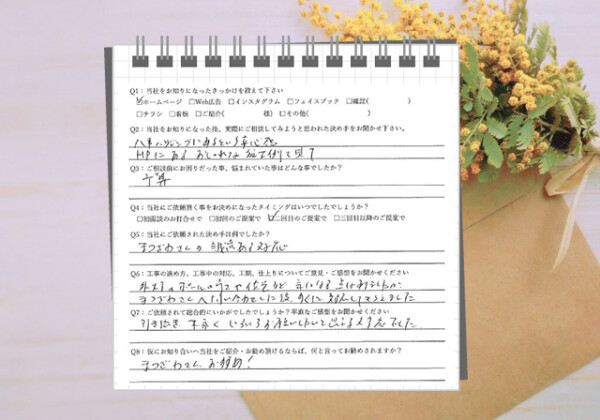 Q1：当社をお知りになったきっかけを教えて下さい
☑ホームページ □Web広告 □インスタグラム □フェイスブック □雑誌( )
□チラシ □看板 □ご紹介( 様) □その他( )
Q2：当社をお知りになった後、実際にご相談してみようと思われた決め手をお聞かせ下さい。
八事ハウジングにあるという安心感
HPにある おしゃれな施工例を見て
Q3：ご相談前にお困りだった事、悩まれていた事はどんな事でしたか？
予算
Q4：当社にご依頼頂く事をお決めになったタイミングはいつでしたでしょうか？
□初面談のお打合せで □初回のご提案で ☑二回目のご提案で □三回目以降のご提案で
Q5：当社にご依頼された決め手は何でしたか？
まつざわさんの 誠意ある対応
Q6：工事の進め方、工事中の対応、工期、仕上りについてご意見・ご感想をお聞かせください
気になる点は有りましたが
まつざわさんへ問い合わせした後、すぐに対応してもらえました
Q7：ご依頼されて総合的にいかがでしたでしょうか？率直なご感想をお聞かせください
引き続き 末永く お願いしたいと思える対応でした。
Q8：仮にお知り合いへ当社をご紹介・お勧め頂けるならば、何と言ってお勧めされますか？
まつざわさん お勧め！